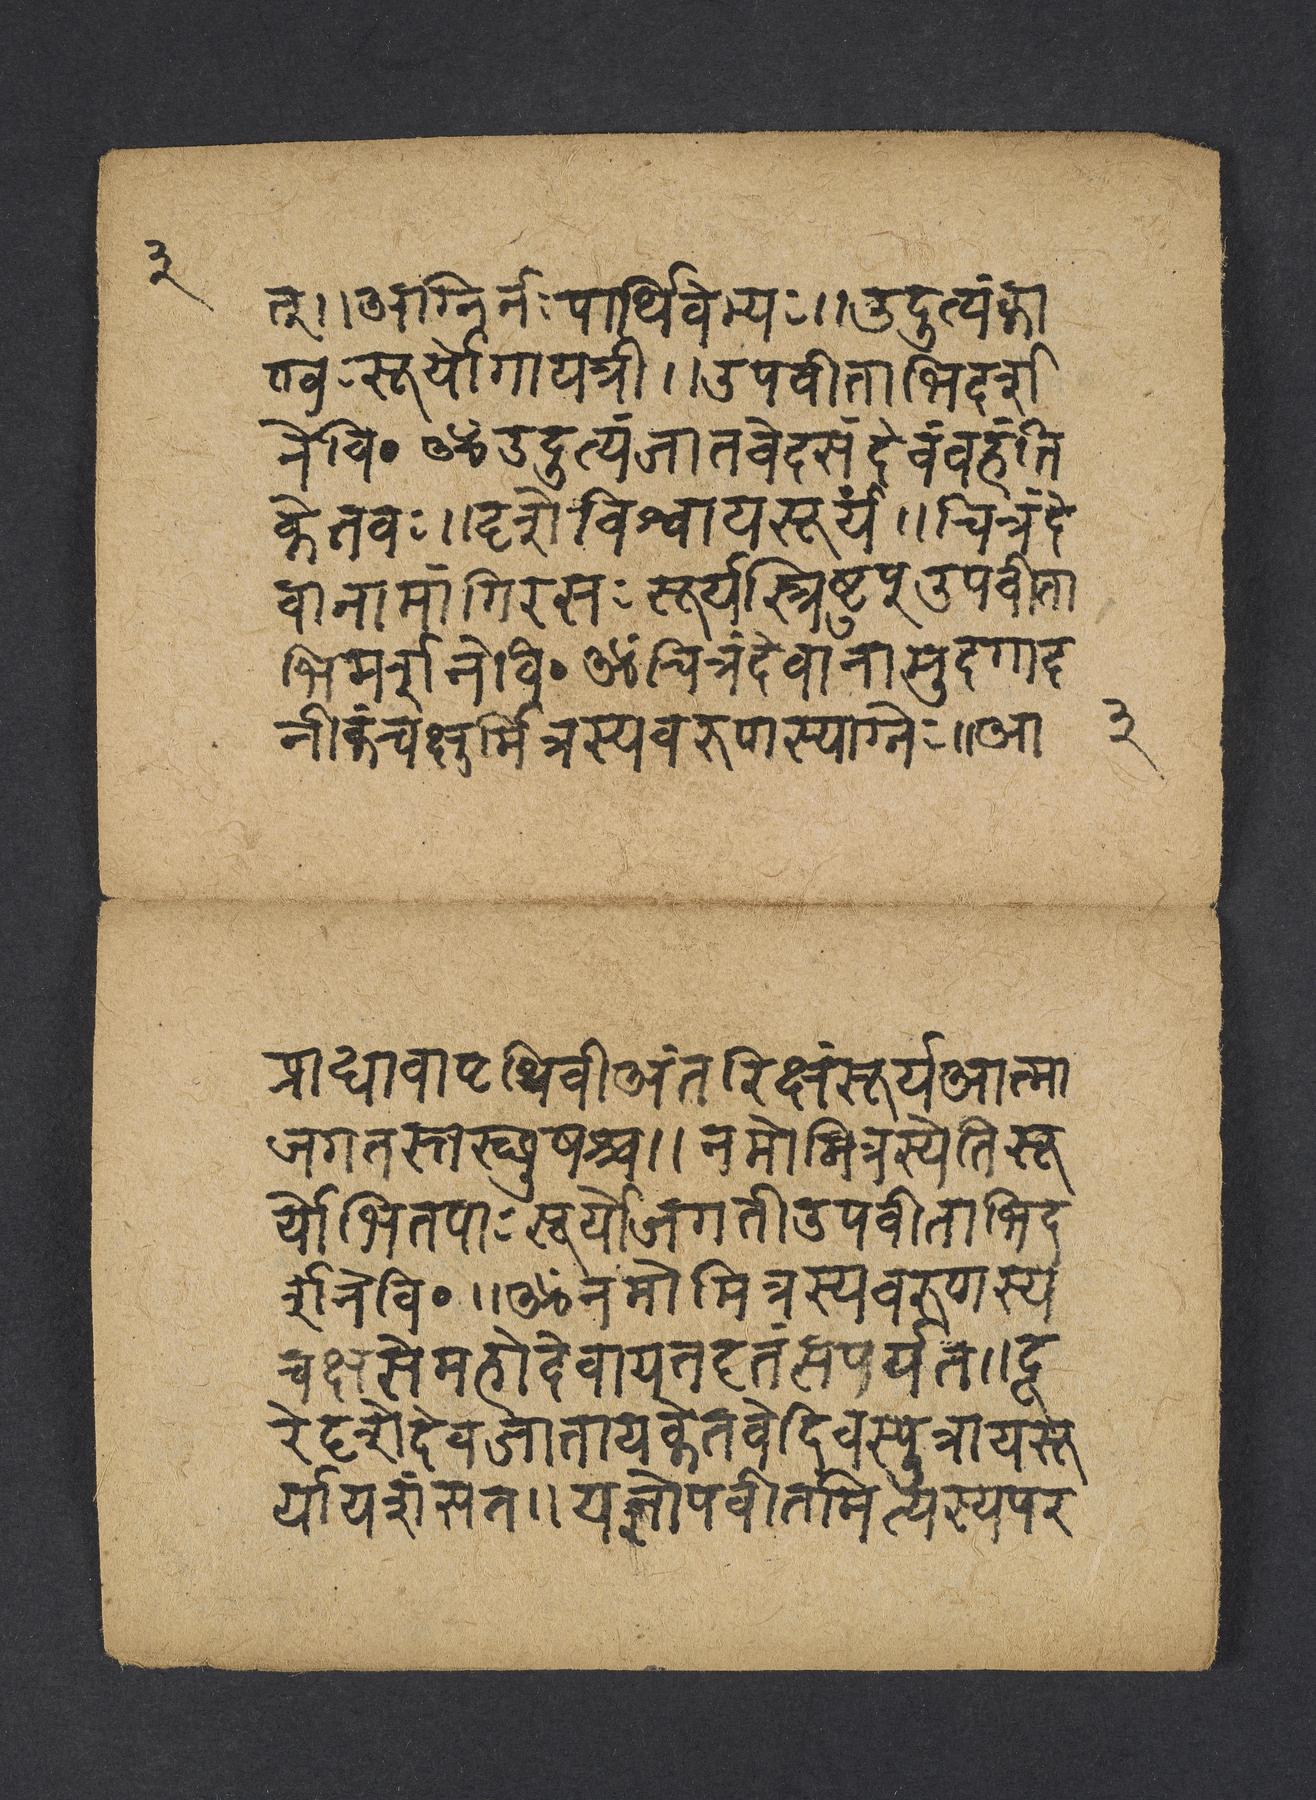 ३
त्॥अग्निर्नःपार्थिवेभ्यः॥उदुत्यंका
ण्वःसूर्योगायत्री॥उपवीताभिदर्श
नेवि॰ ॐउदुत्यंजातवेदसंदेवंवहंति
केतवः॥दृशेविश्वायसूर्यं॥चित्रंदे
वानामांगिरसःसूर्यस्त्रिष्टुप्उपवीता
भिमर्शनेवि॰ॐचित्रंदेवानामुदगाद
नीकंचक्षुर्मित्रस्यवरुणस्याग्नेः॥आ
३
प्राद्यावापृथिवीअंतरिक्षंसूर्यआत्मा
जगतस्तस्थुषश्च॥नमोमित्रस्येतिसू
र्योभितपाःसूर्योजगतीउपवीताभिद
र्शनेवि॰॥ॐनमोमित्रस्यवरुणस्य
चक्षसेमहोदेवायतदृतंसपर्यत॥दू
रेदृशेदेवजातायकेतवेदिवस्पुत्रायसू
र्यायशंसत॥यज्ञोपवीतमित्यस्यपर